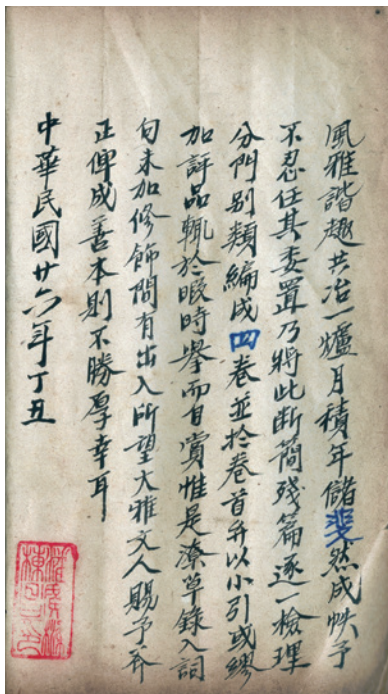 風雅諧趣共冶一爐月積年儲斐然成帙予
不忍任其委置乃將此断簡殘篇逐一檢理
分門别類編成四卷並於卷首弁以小引或繆
加評品輒於暇時舉而自賞惟是潦草錄入詞
句未加修飾間有出入所望大雅文人賜予斧
正俾成善本則不勝厚幸耳
中華民國廿六年丁丑